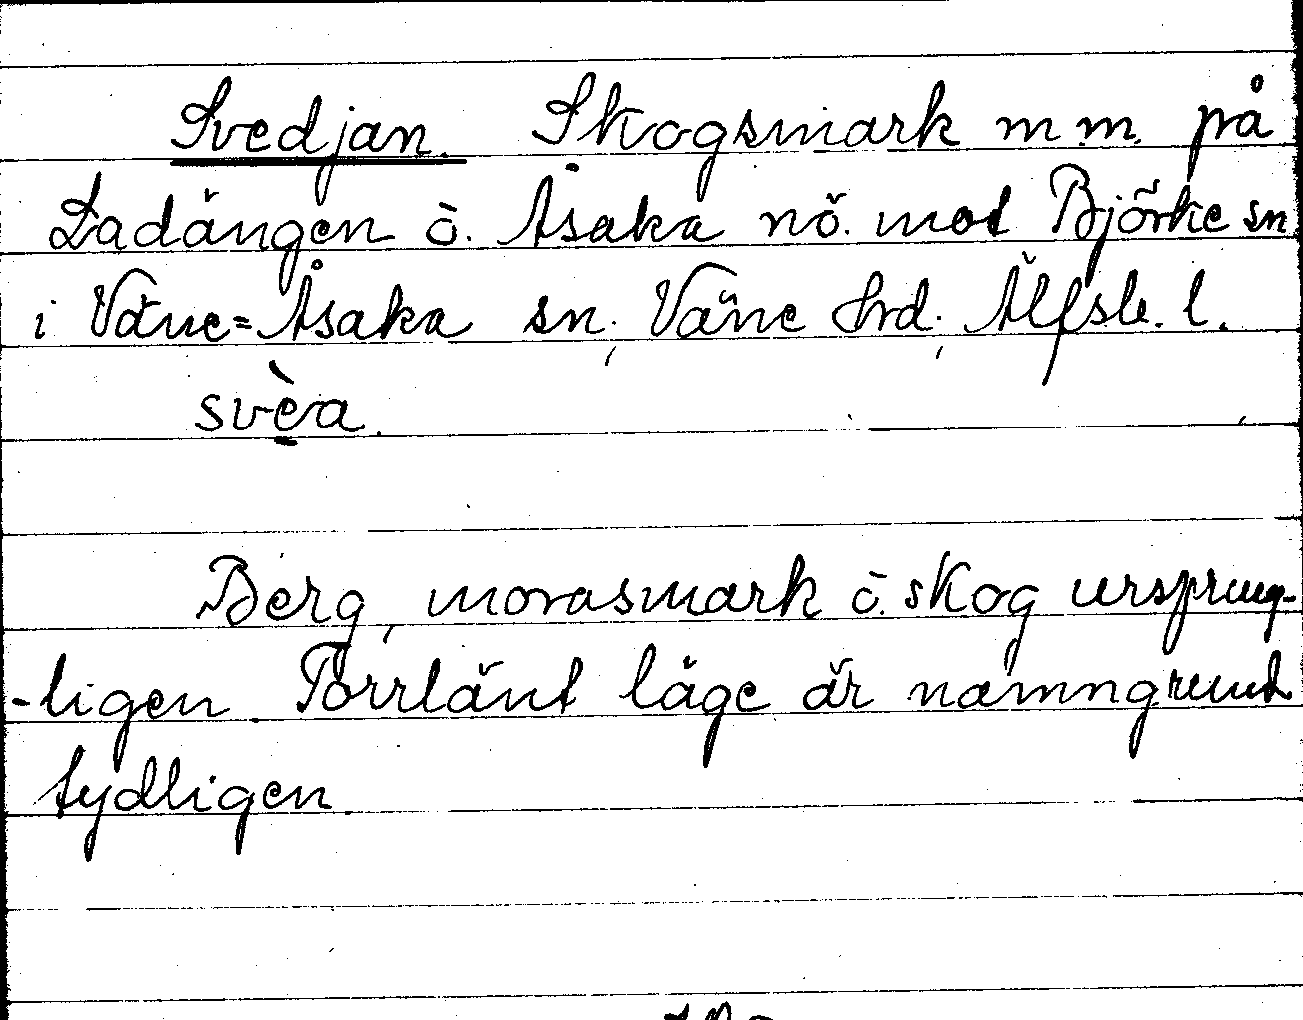 Svedjan. Skogsmark m.m. på
Ladängen ö. Åsaka nö. mot Björke sn
i Väne=Åsaka sn, Väne hrd, Älfsb. l.
svèa.
Berg, morasmark o. skog ursprung-
-ligen. Torrlänt läge är namngrund
tydligen.